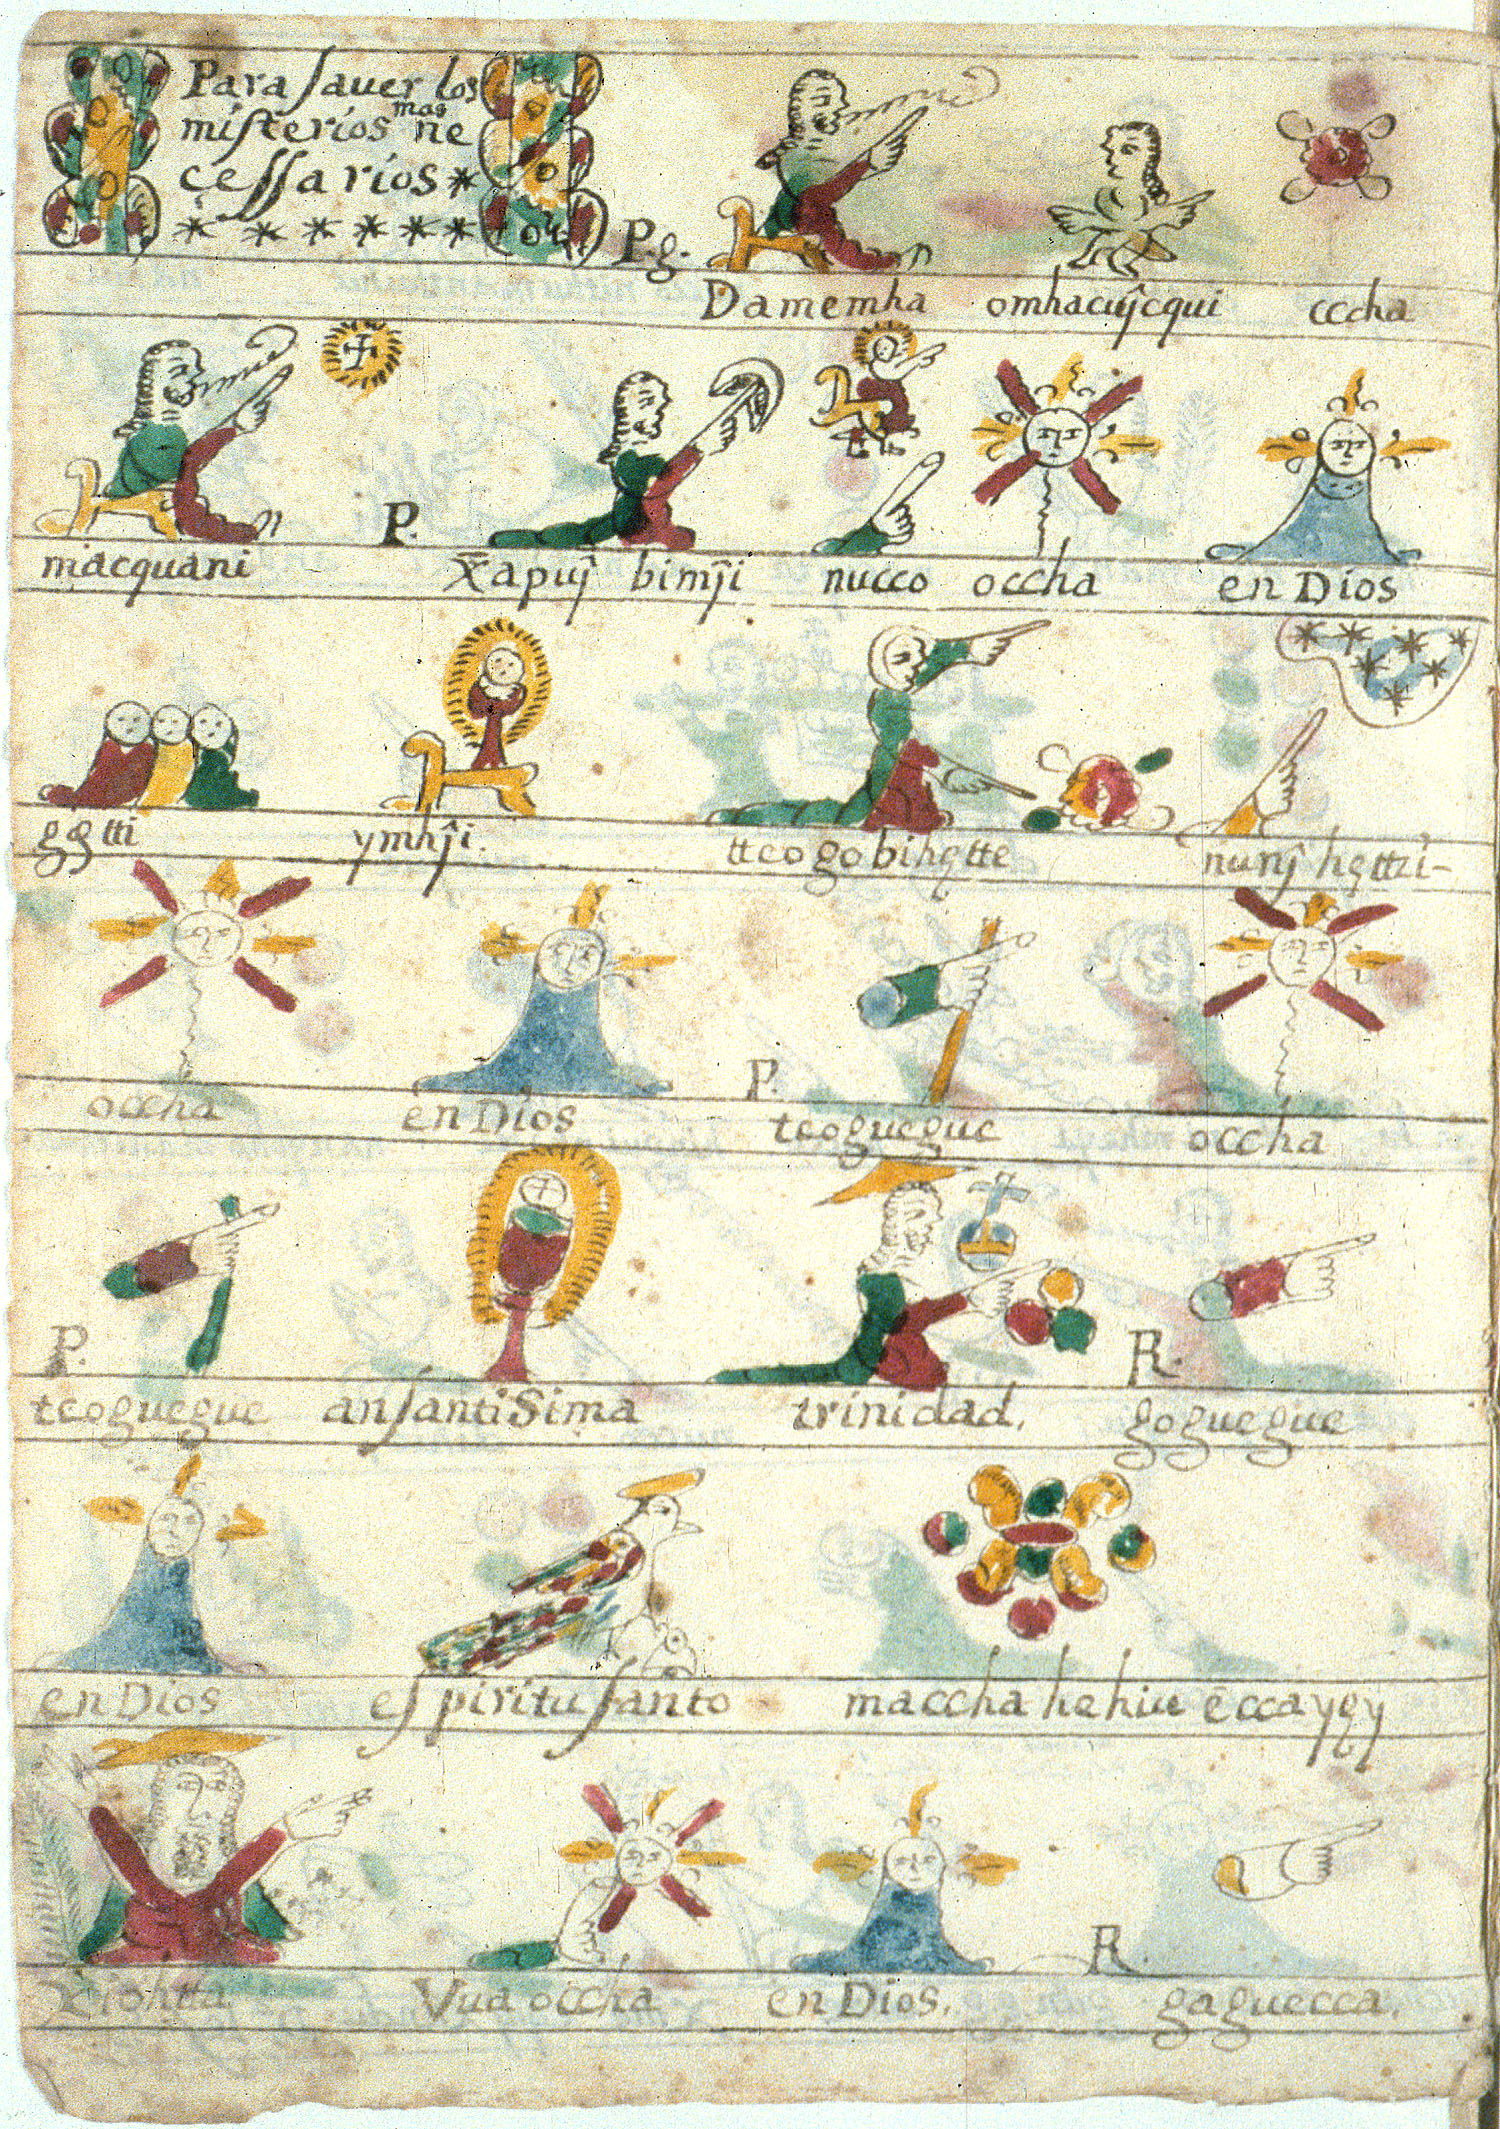 Para sauer los
misterios mas ne
cessarios *
* * * * * *
P.g.
Damemha omhacuŷcqui cccha
P.
macquani x̃apuŷ bimŷi nucco occha en Dios
ymhŷi. tteogobihętte nunŷ hęttzi-
P.
occha en Dios teoguegue occha
P. R.
teoguegue ansantiSima trinidad, goguegue
en Dios espiritu santo maccha hęhiu ęccayęy
R.
Vua occha en Dios, gaguecca,